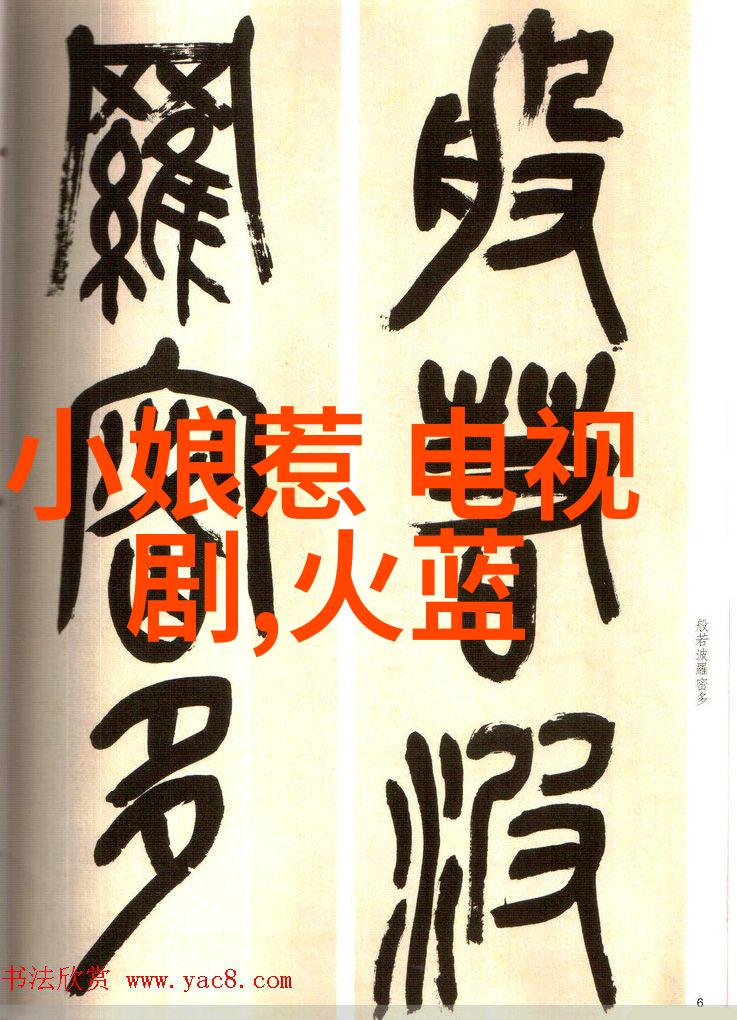 般若波
羅密多
小娘惹 电视
剧,火蓝
般若波羅密多
书法欣赏 www.yac8.com
6